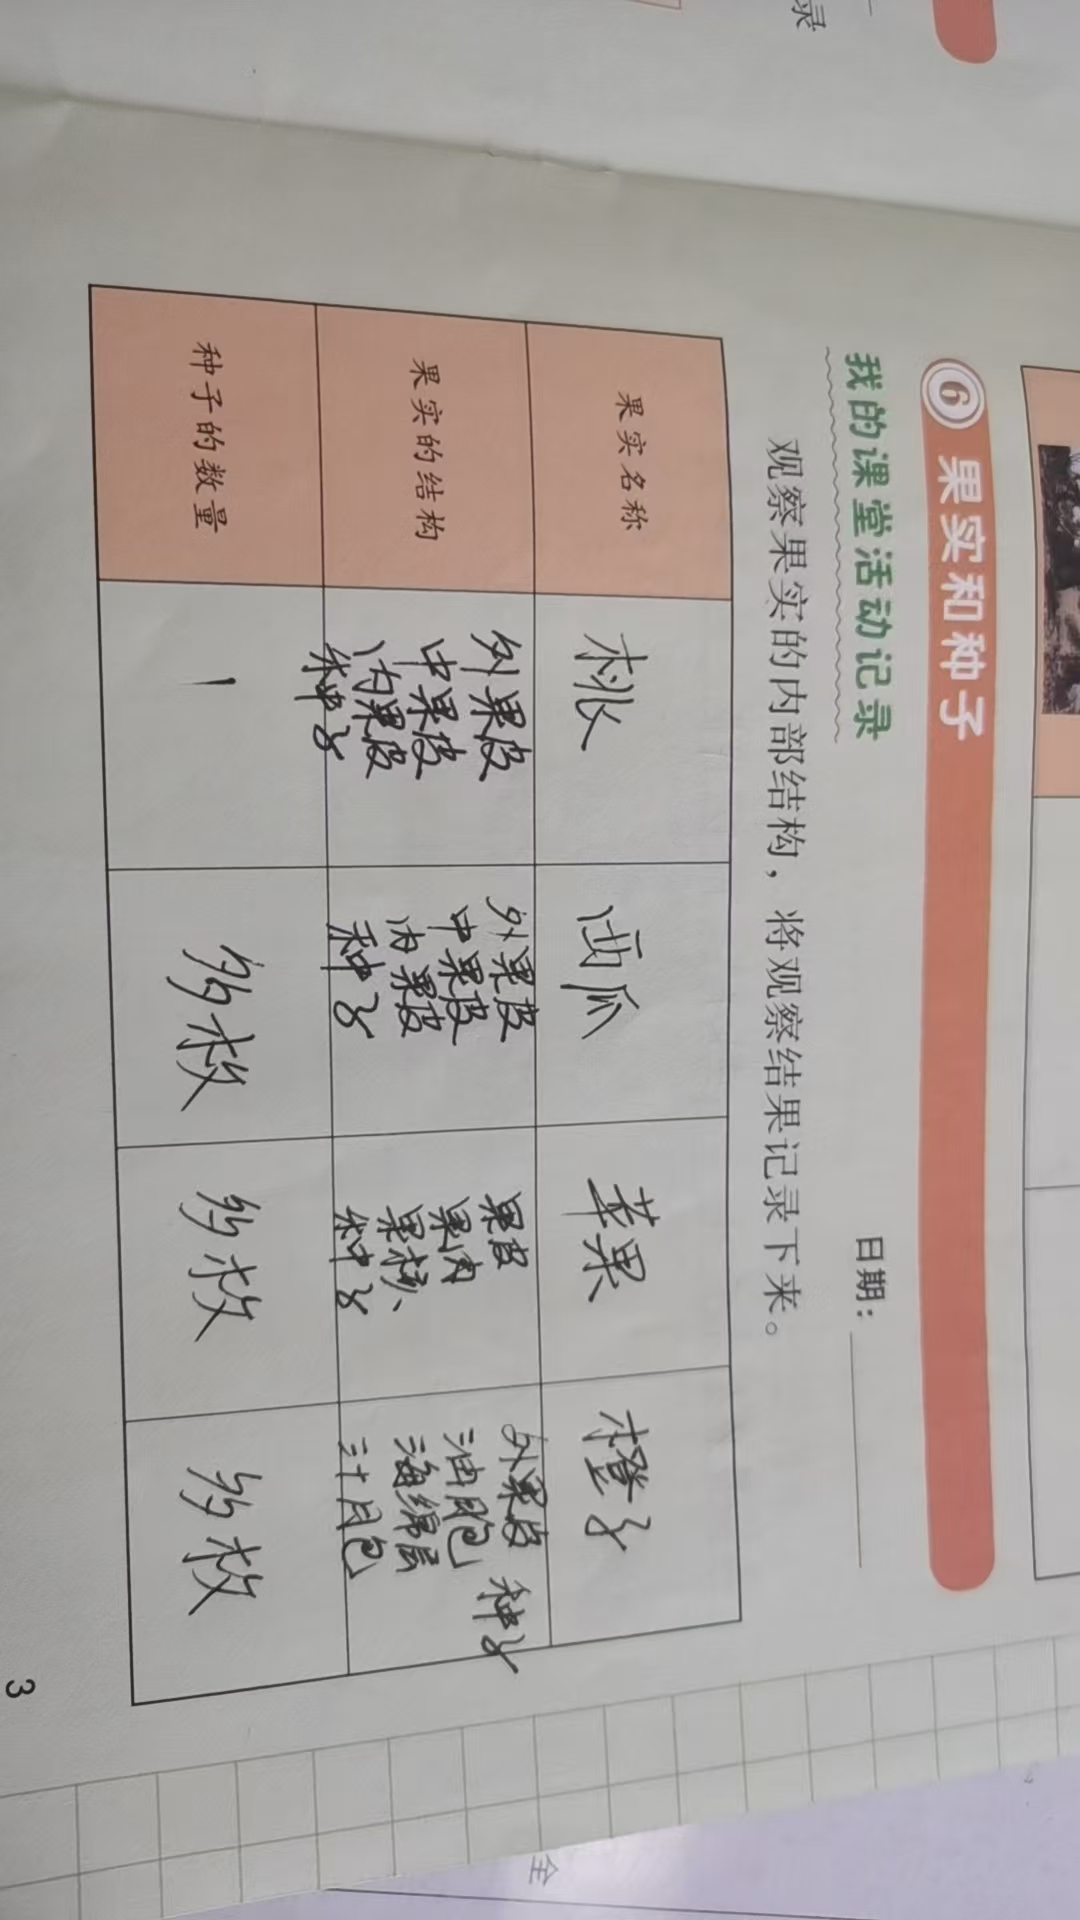 录
6 果实和种子
我的课堂活动记录
日期：
观察果实的内部结构，将观察结果记录下来。
果实名称 桃 西瓜 苹果 橙子
果实的结构
外果皮
中果皮
内果皮
种子
外果皮
中果皮
内果皮
种子
果皮
果肉
果核、
种子
外果皮
油胞
海绵层
汁胞
种子
种子的数量 1 多枚 多枚 多枚
3
全